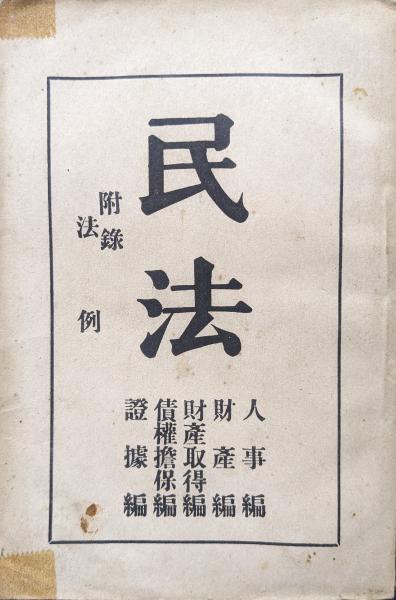 民法
人事編
財產編
財產取得編
債權擔保編
證據編
附錄
法例